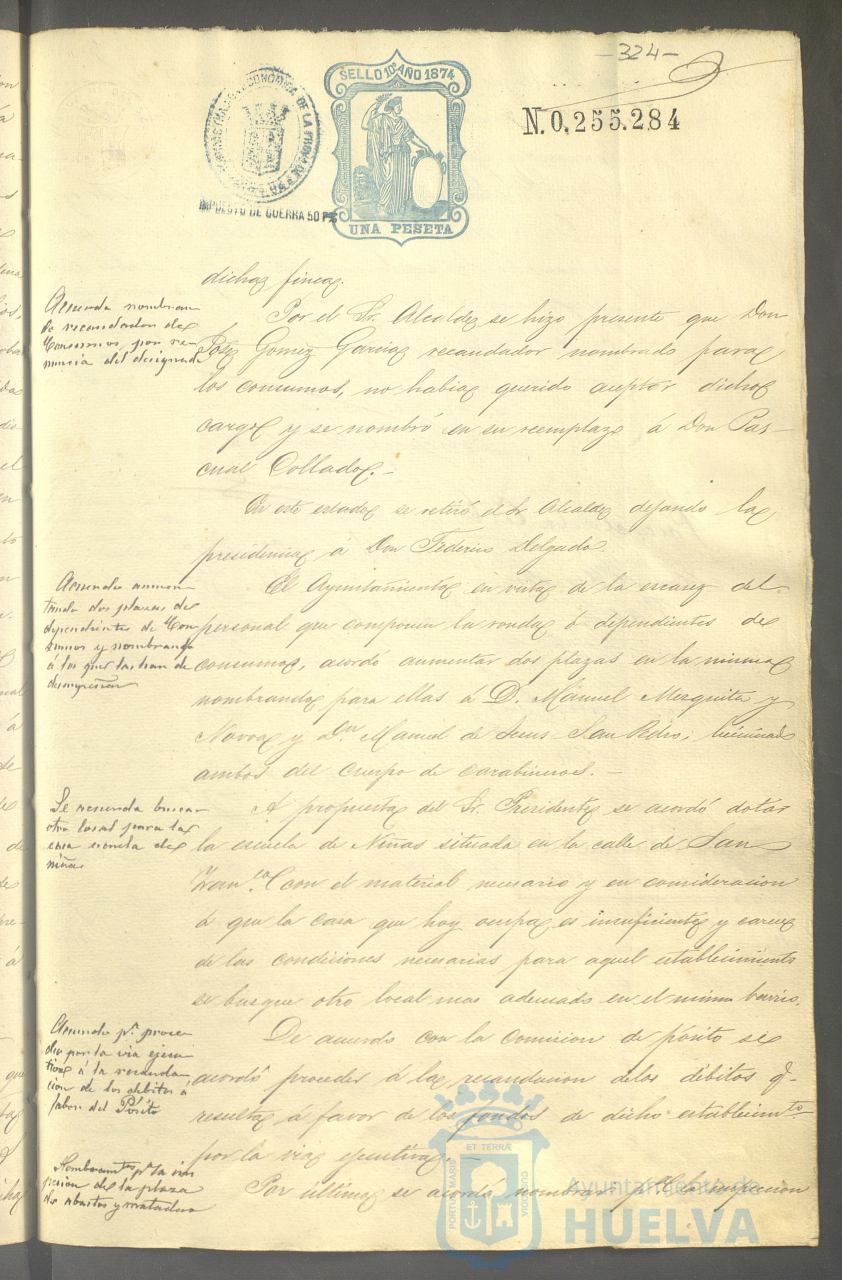 -324-
SELLO 10º AÑO 1874
UNA PESETA
IMPUESTO DE GUERRA 50 P%
N. 0,255.284
dichas fincas.
Acuerda nombram
de recaudador de
Consumos, por re-
nuncia del designado
Por el Sr. Alcalde se hizo presente que Don
José Gomez Garcia recaudador nombrado para
los consumos, no habia querido aceptar dicho
cargo y se nombró en su reemplazo á Don Pas-
cual Collado.-
En este estado se retiró el Sr Alcalde dejando la
presidencia á Don Federico Delgado.
Acuerda aumen-
tando dos plazas de
dependientes de Con
sumos y nombrando
á los que las han de
desempeñar
El Ayuntamiento en vista de la escasez del
personal que componen la ronda ó dependientes de
consumos, acordó aumentar dos plazas en la misma
nombrando para ellas á D. Manuel Mezquita y
Novoa y Dn Manuel de Jesus San Pedro, licenciado
ambos del cuerpo de carabineros.-
Se acuerda buscar
otro local para la
casa escuela de
niñas
A propuesta del Sr. Presidente se acordó dotar
la escuela de Niñas situada en la calle de San
Franco. con el material necesario y en consideracion
á que la casa que hoy ocupa es insuficiente y carece
de las condiciones necesarias para aquel establecimiento
se busque otro local mas adecuado en el mismo barrio.
Acuerdo pa. proce-
der por la via ejecu-
tiva á la recauda-
cion de los débitos á
fabor del Pósito
De acuerdo con la Comision de pósito se
acordó proceder á la recaudacion de los débitos q.
resulta á favor de los fondos de dicho establecimto.
por la via ejecutiva.
Nombramto pa la ins
peccion de la plaza
de abastos y matadero
Por último se acordó nombrar pa. la inspeccion
ET TERRÆ
PORTUS MARIS
CUSTODIA
Ayuntamiento de
HUELVA